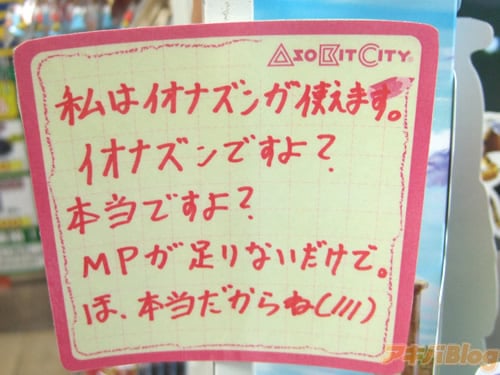 AsoBitCity
私はイオナズンが使えます。
イオナズンですよ?
本当ですよ?
MPが足りないだけで。
ほ、本当だからね(///)
アキバBlog